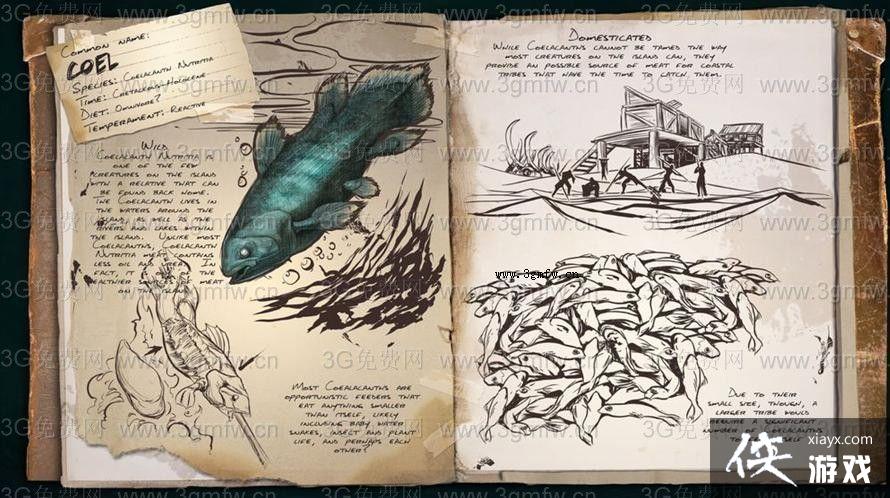 Common name:
COEL
Species: Coelacanth Nutritia
Time: Cretaceous-Holocene
Diet: Omnivore?
Temperament: Reactive
Wild
Coelacanth Nutritia
one of the few
creatures on the island
with a relative that can
be found back home.
The Coelacanth lives in
the waters around the
island, as well as the
rivers and lakes within
the island. Unlike most
Coelacanths, Coelacanth
Nutritia meat contains
less oil and urea. In
fact, it of the
healthier sources of meat
on
Most Coelacanths are
opportunistic feeders that
eat anything smaller
than itself, likely
including baby water
snakes, insect and plant
life, and perhaps each
other?
Domesticated
While Coelacanths cannot be tamed the way
most creatures on the island can, they
provide an possible source of meat for coastal
tribes that have the time to catch them.
www.3gmfw.cn
Due to their
small size, though, a
larger tribe would
require a significant
number of Coelacanths
to itself
3G免费网 www.3gmfw.cn
侠 xiayx.com
游戏